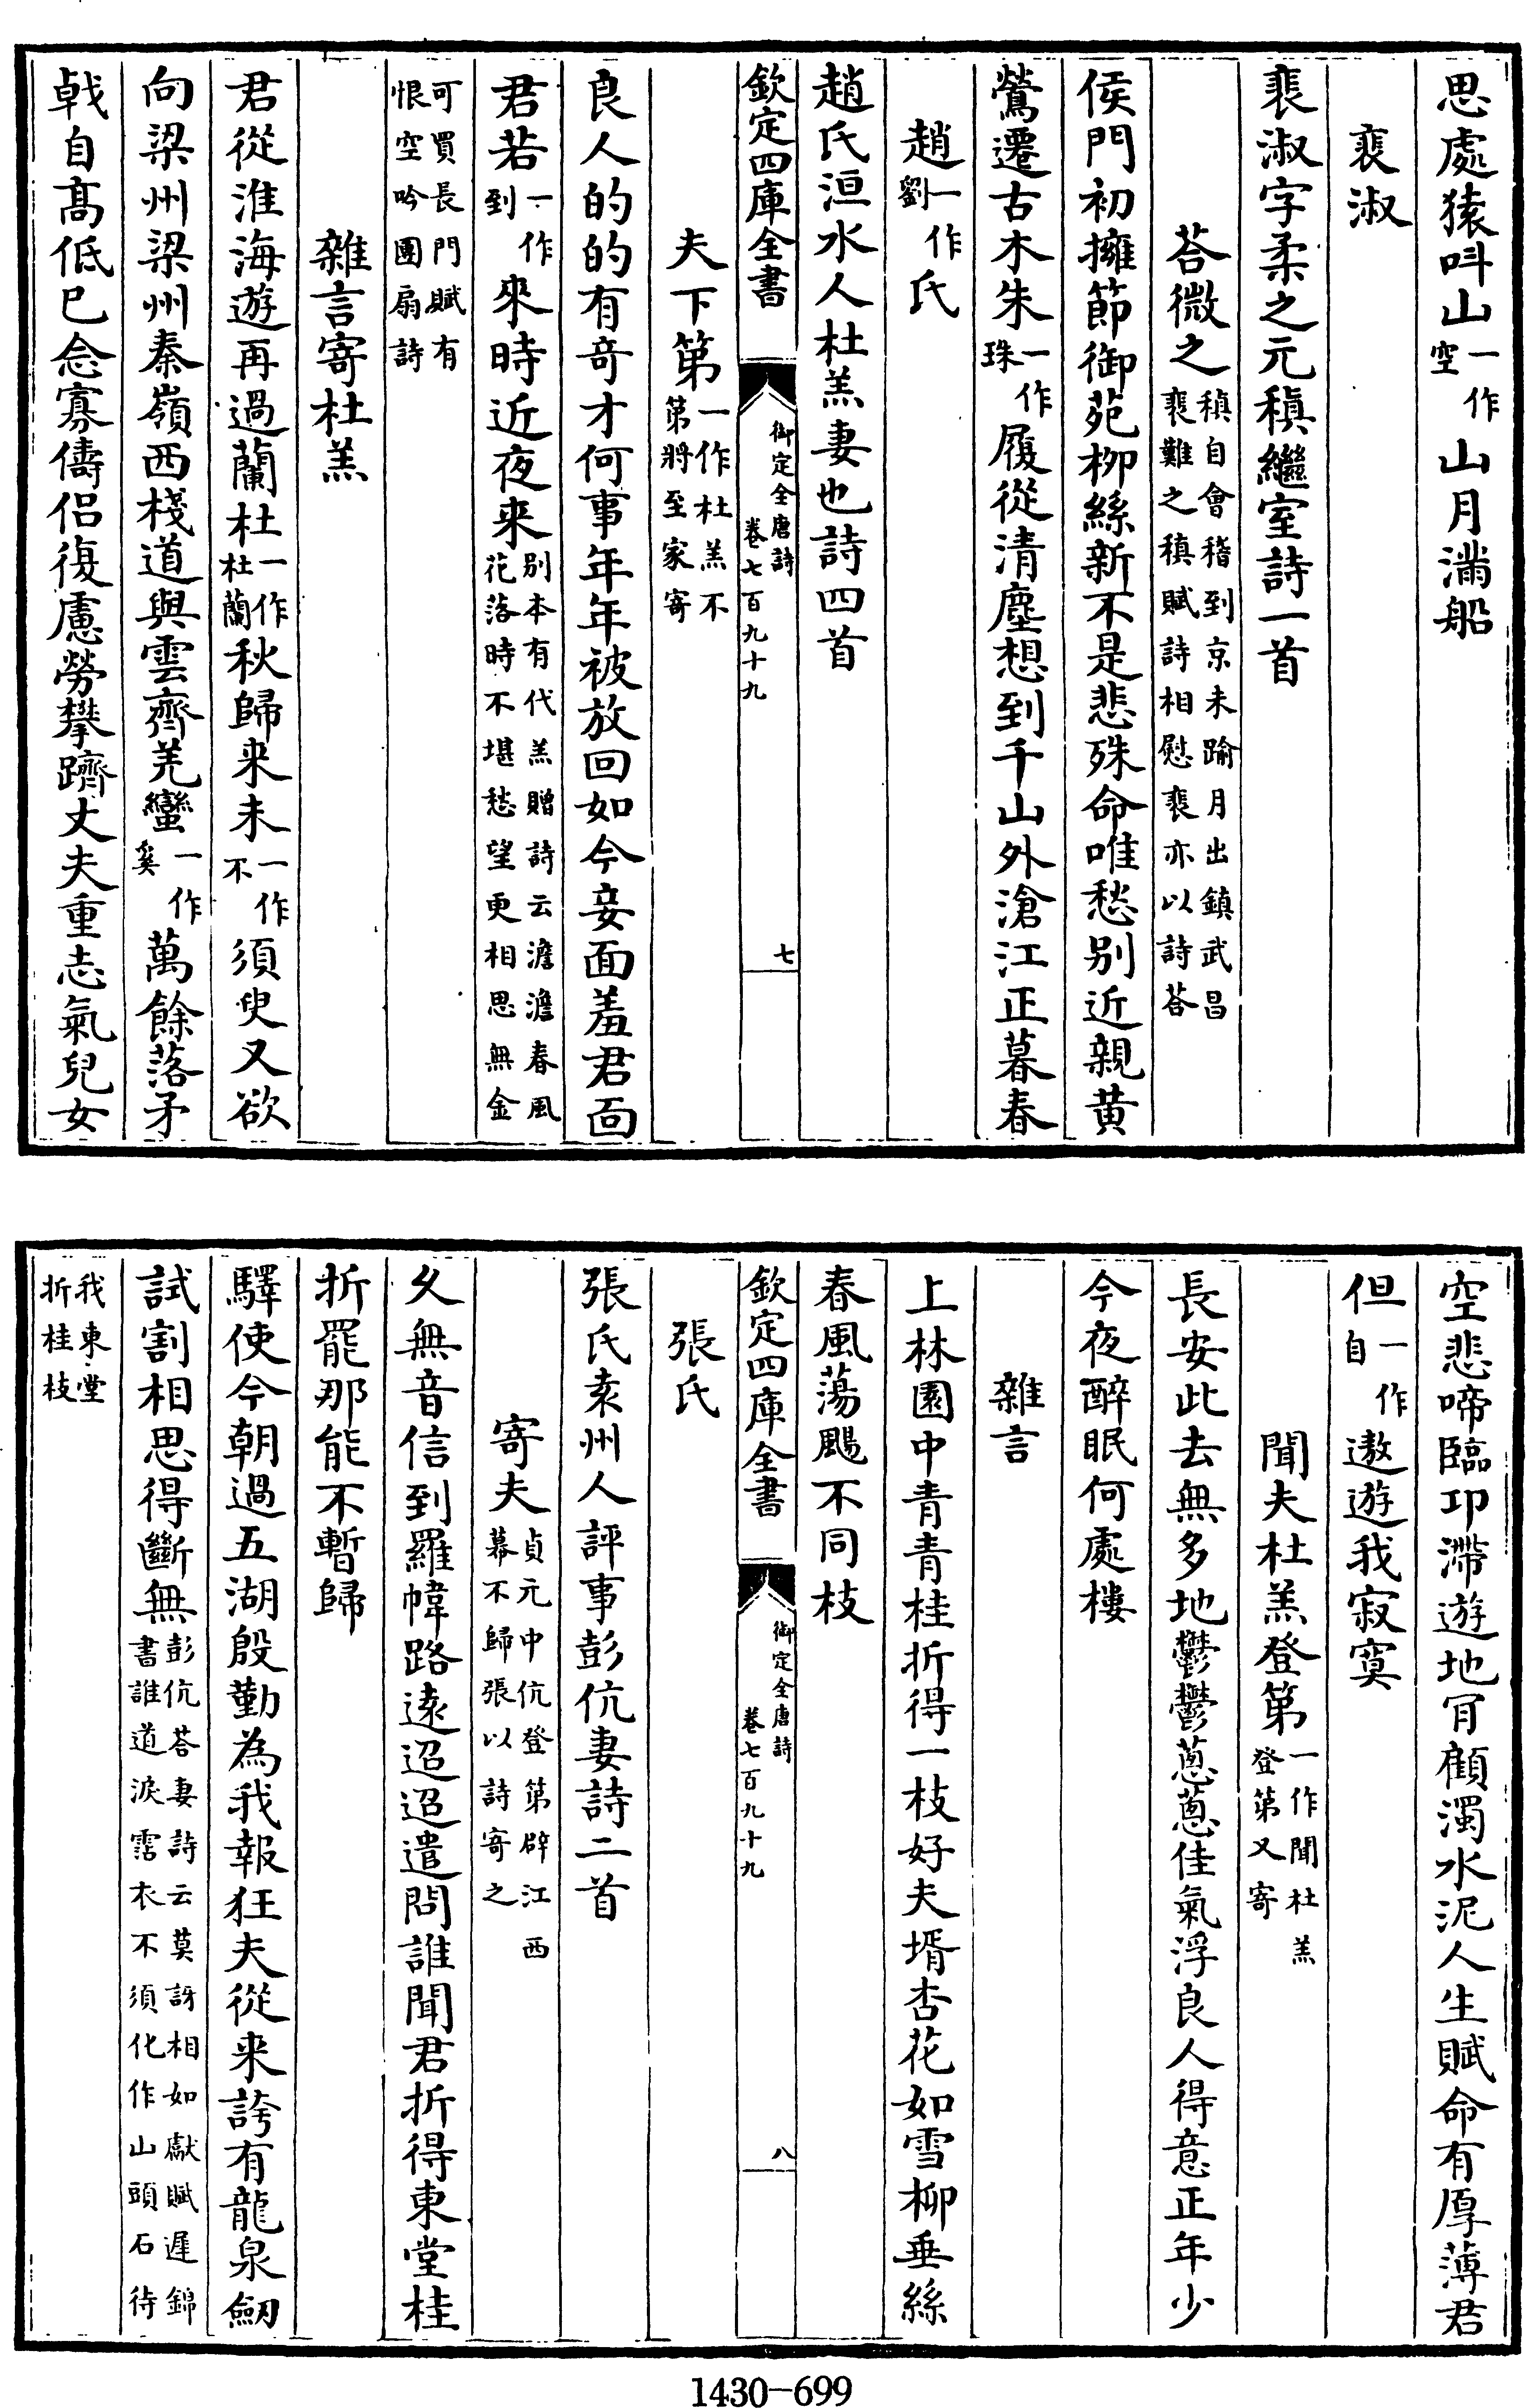 思處猿呌山一作空山月滿船
裴淑
裴淑字柔之元稹繼室詩一首
荅微之稹自會稽到京未踰月出鎮武昌裴難之稹賦詩相慰裴亦以詩荅
侯門初擁節御苑栁絲新不是悲殊命唯愁别近親黄
鶯遷古木朱一作珠履從清塵想到千山外滄江正暮春
趙一作劉氏
趙氏洹水人杜羔妻也詩四首
欽定四庫全書
御定全唐詩
卷七百九十九
七
夫下第一作杜羔不第將至家寄
良人的的有竒才何事年年被放回如今妾面羞君面
君若一作到來時近夜来别本有代羔贈詩云澹澹春風花落時不堪愁望更相思無金
可買長門賦有恨空吟團扇詩
雜言寄杜羔
君從淮海遊再過蘭杜一作杜蘭秋歸来未一作不須臾又欲
向梁州梁州秦嶺西棧道與雲齊羌蠻一作奚萬餘落矛
戟自髙低已念寡儔侣復慮勞攀躋丈夫重志氣兒女
空悲啼臨卭滯遊地肎顧濁水泥人生賦命有厚薄君
但一作自遨遊我寂寞
聞夫杜羔登第一作聞杜羔登第又寄
長安此去無多地鬱鬱蔥蔥佳氣浮良人得意正年少
今夜醉眠何處樓
雜言
上林園中青青桂折得一枝好夫壻杏花如雪柳垂絲
春風蕩颺不同枝
欽定四庫全書
御定全唐詩
卷七百九十九
八
張氏
張氏袁州人評事彭伉妻詩二首
寄夫貞元中伉登第辟江西幕不歸張以詩寄之
乆無音信到羅幃路逺迢迢遣問誰聞君折得東堂桂
折罷那能不暫歸
驛使今朝過五湖殷勤為我報狂夫從来誇有龍泉劒
試割相思得斷無彭伉荅妻詩云莫訝相如獻賦遲錦書誰道淚霑衣不須化作山頭石待
我東堂折桂枝
1430-699